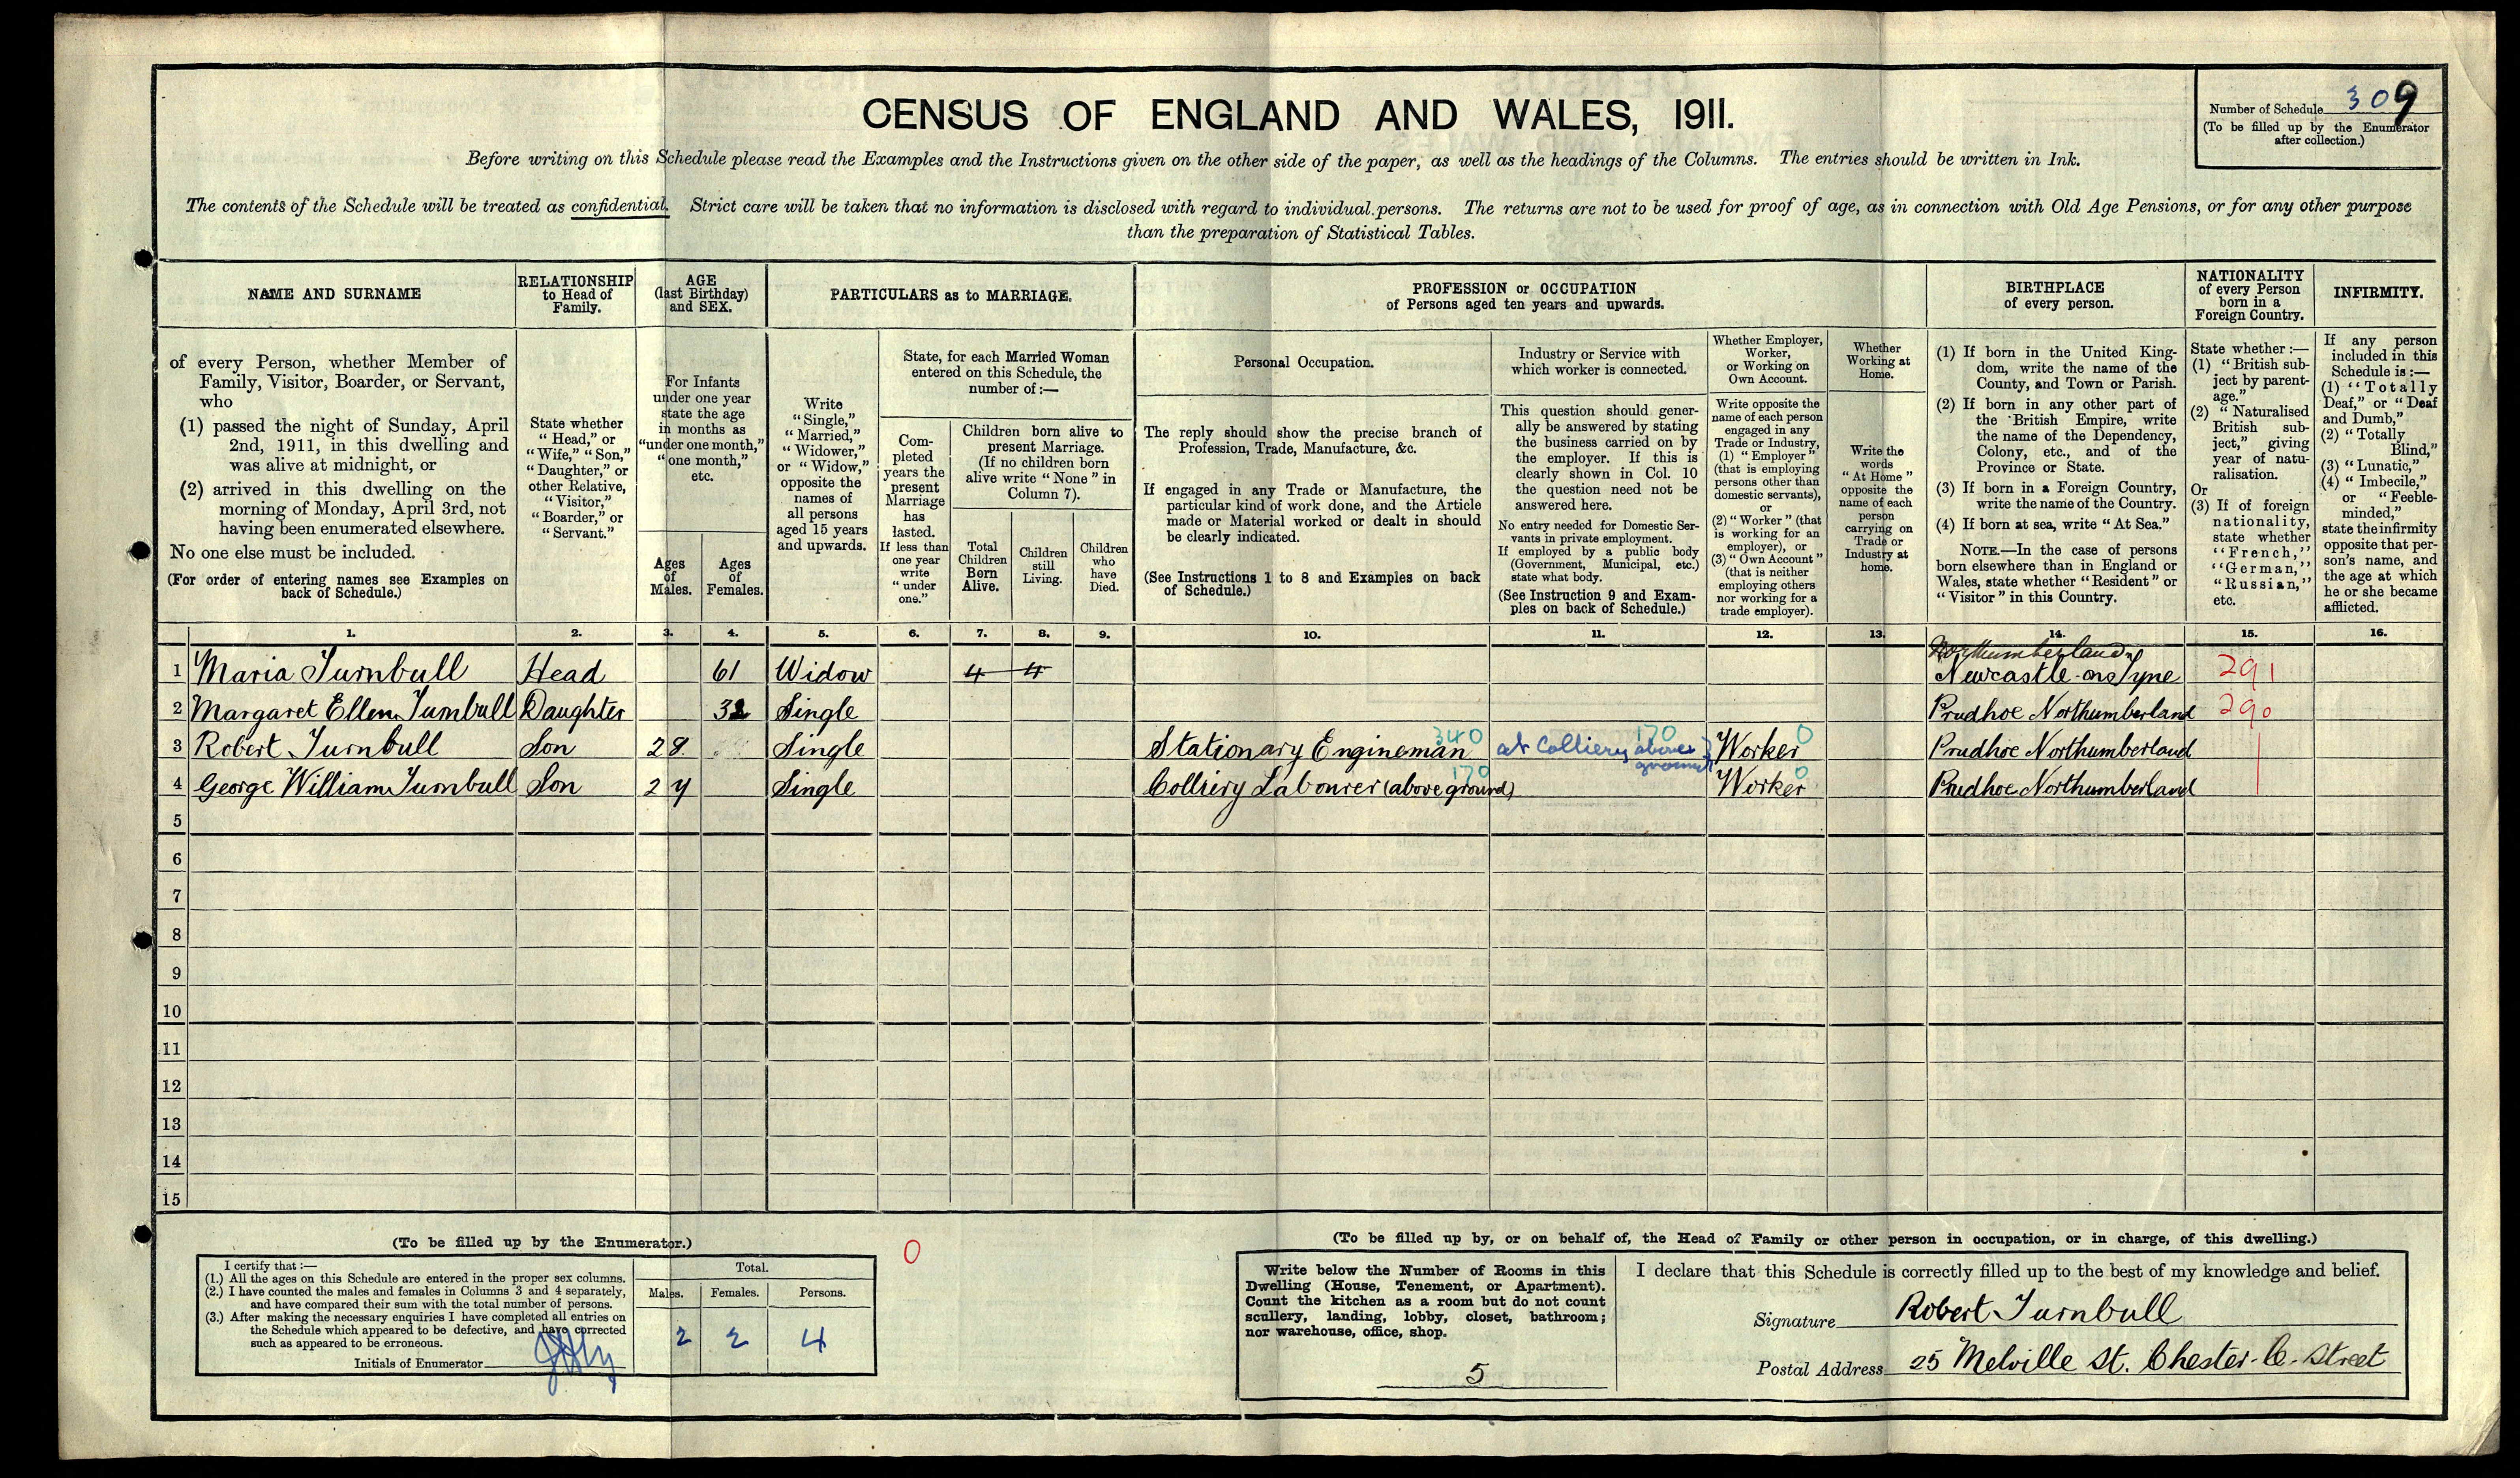 CENSUS OF ENGLAND AND WALES, 1911.
Number of Schedule 309
(To be filled up by the Enumerator
after collection.)
Before writing on this Schedule please read the Examples and the Instructions given on the other side of the paper, as well as the headings of the Columns. The entries should be written in Ink.
The contents of the Schedule will be treated as confidential. Strict care will be taken that no information is disclosed with regard to individual persons. The returns are not to be used for proof of age, as in connection with Old Age Pensions, or for any other purpose
than the preparation of Statistical Tables.
NAME AND SURNAME
of every Person, whether Member of
Family, Visitor, Boarder, or Servant,
who
(1) passed the night of Sunday, April
2nd, 1911, in this dwelling and
was alive at midnight, or
(2) arrived in this dwelling on the
morning of Monday, April 3rd, not
having been enumerated elsewhere.
No one else must be included.
(For order of entering names see Examples on
back of Schedule.)
RELATIONSHIP
to Head of
Family.
State whether
"Head," or
"Wife," "Son,"
"Daughter," or
other Relative,
"Visitor,"
"Boarder," or
"Servant."
AGE
(last Birthday)
and SEX.
For Infants
under one year
state the age
in months as
"under one month,"
"one month,"
etc.
Ages
of
Males.
Ages
of
Females.
PARTICULARS as to MARRIAGE.
Write
"Single,"
"Married,"
"Widower,"
or "Widow,"
opposite the
names of
all persons
aged 15 years
and upwards.
State, for each Married Woman
entered on this Schedule, the
number of:—
Com-
pleted
years the
present
Marriage
has
lasted.
If less than
one year
write
"under
one."
Children born alive to
present Marriage.
(If no children born
alive write "None" in
Column 7).
Total
Children
Born
Alive.
Children
still
Living.
Children
who
have
Died.
PROFESSION or OCCUPATION
of Persons aged ten years and upwards.
Personal Occupation.
The reply should show the precise branch of
Profession, Trade, Manufacture, &c.
If engaged in any Trade or Manufacture, the
particular kind of work done, and the Article
made or Material worked or dealt in should
be clearly indicated.
(See Instructions 1 to 8 and Examples on back
of Schedule.)
Industry or Service with
which worker is connected.
This question should gener-
ally be answered by stating
the business carried on by
the employer. If this is
clearly shown in Col. 10
the question need not be
answered here.
No entry needed for Domestic Ser-
vants in private employment.
If employed by a public body
(Government, Municipal, etc.)
state what body.
(See Instruction 9 and Exam-
ples on back of Schedule.)
Whether Employer,
Worker,
or Working on
Own Account.
Write opposite the
name of each person
engaged in any
Trade or Industry,
(1) "Employer"
(that is employing
persons other than
domestic servants),
or
(2) "Worker" (that
is working for an
employer), or
(3) "Own Account"
(that is neither
employing others
nor working for a
trade employer).
Whether
Working at
Home.
Write the
words
"At Home"
opposite the
name of each
person
carrying on
Trade or
Industry at
home.
BIRTHPLACE
of every person.
(1) If born in the United King-
dom, write the name of the
County, and Town or Parish.
(2) If born in any other part of
the British Empire, write
the name of the Dependency,
Colony, etc., and of the
Province or State.
(3) If born in a Foreign Country,
write the name of the Country.
(4) If born at sea, write "At Sea."
NOTE.—In the case of persons
born elsewhere than in England or
Wales, state whether "Resident" or
"Visitor" in this Country.
NATIONALITY
of every Person
born in a
Foreign Country.
State whether:—
(1) "British sub-
ject by parent-
age."
(2) "Naturalised
British sub-
ject," giving
year of natu-
ralisation.
Or
(3) If of foreign
nationality,
state whether
"French,"
"German,"
"Russian,"
etc.
INFIRMITY.
If any person
included in this
Schedule is:—
(1) "Totally
Deaf," or "Deaf
and Dumb,"
(2) "Totally
Blind,"
(3) "Lunatic,"
(4) "Imbecile,"
or "Feeble-
minded,"
state the infirmity
opposite that per-
son's name, and
the age at which
he or she became
afflicted.
1. 2. 3. 4. 5. 6. 7. 8. 9. 10. 11. 12. 13. 14. 15. 16.
Northumberland
1 Maria Turnbull Head 61 Widow 4 4 Newcastle-on-Tyne 291
2 Margaret Ellen Turnbull Daughter Single Prudhoe Northumberland 290
340 170 0
3 Robert Turnbull Son 28 Single Stationary Engineman at Colliery above Worker Prudhoe Northumberland
ground
170 0
4 George William Turnbull Son 24 Single Colliery Labourer (above ground) Worker Prudhoe Northumberland
5
6
7
8
9
10
11
12
13
14
15
(To be filled up by the Enumerator.)
I certify that:—
(1.) All the ages on this Schedule are entered in the proper sex columns.
(2.) I have counted the males and females in Columns 3 and 4 separately,
and have compared their sum with the total number of persons.
(3.) After making the necessary enquiries I have completed all entries on
the Schedule which appeared to be defective, and have corrected
such as appeared to be erroneous.
Initials of Enumerator
Total.
Males. Females. Persons.
2 2 4
0
(To be filled up by, or on behalf of, the Head of Family or other person in occupation, or in charge, of this dwelling.)
Write below the Number of Rooms in this
Dwelling (House, Tenement, or Apartment).
Count the kitchen as a room but do not count
scullery, landing, lobby, closet, bathroom;
nor warehouse, office, shop.
5
I declare that this Schedule is correctly filled up to the best of my knowledge and belief.
Signature Robert Turnbull
Postal Address 25 Melville St. Chester-le-Street